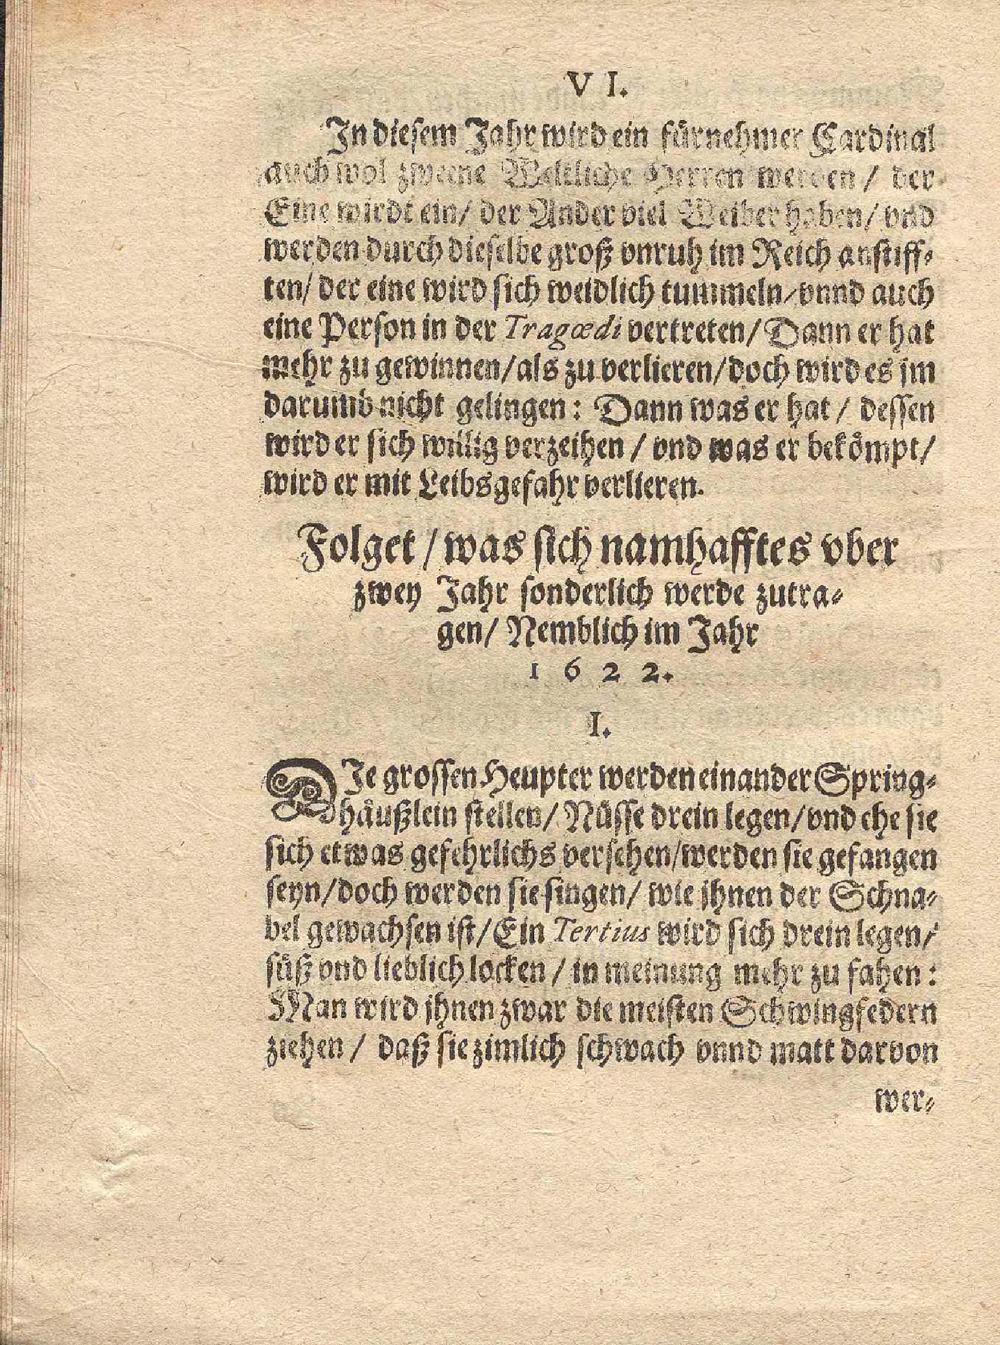 V I.
In diesem Jahr wird ein fürnehmer Cardinal
auch wol zweene Weltliche Herren werden / der
Eine wirdt ein/ der Ander viel Weiber haben/ vnd
werden durch dieselbe groß vnruh im Reich anstiff⸗
ten/ der eine wird sich weidlich tummeln/ vnnd auch
eine Person in der Tragœdi vertreten/ Dann er hat
mehr zu gewinnen/ als zu verlieren/ doch wird es jm
darumb nicht gelingen: Dann was er hat / dessen
wird er sich willig verzeihen / vnd was er bekömpt/
wird er mit Leibsgefahr verlieren.
Folget / was sich namhafftes vber
zwey Jahr sonderlich werde zutra⸗
gen/ Nemblich im Jahr
1 6 2 2.
I.
DJe grossen Heupter werden einander Spring⸗
häußlein stellen/ Nüsse drein legen/ vnd ehe sie
sich etwas gefehrlichs versehen/ werden sie gefangen
seyn/ doch werden sie singen/ wie jhnen der Schna⸗
bel gewachsen ist/ Ein Tertius wird sich drein legen/
süß vnd lieblich locken / in meinung mehr zu fahen:
Man wird jhnen zwar die meisten Schwingfedern
ziehen / daß sie zimlich schwach vnnd matt darvon
wer⸗